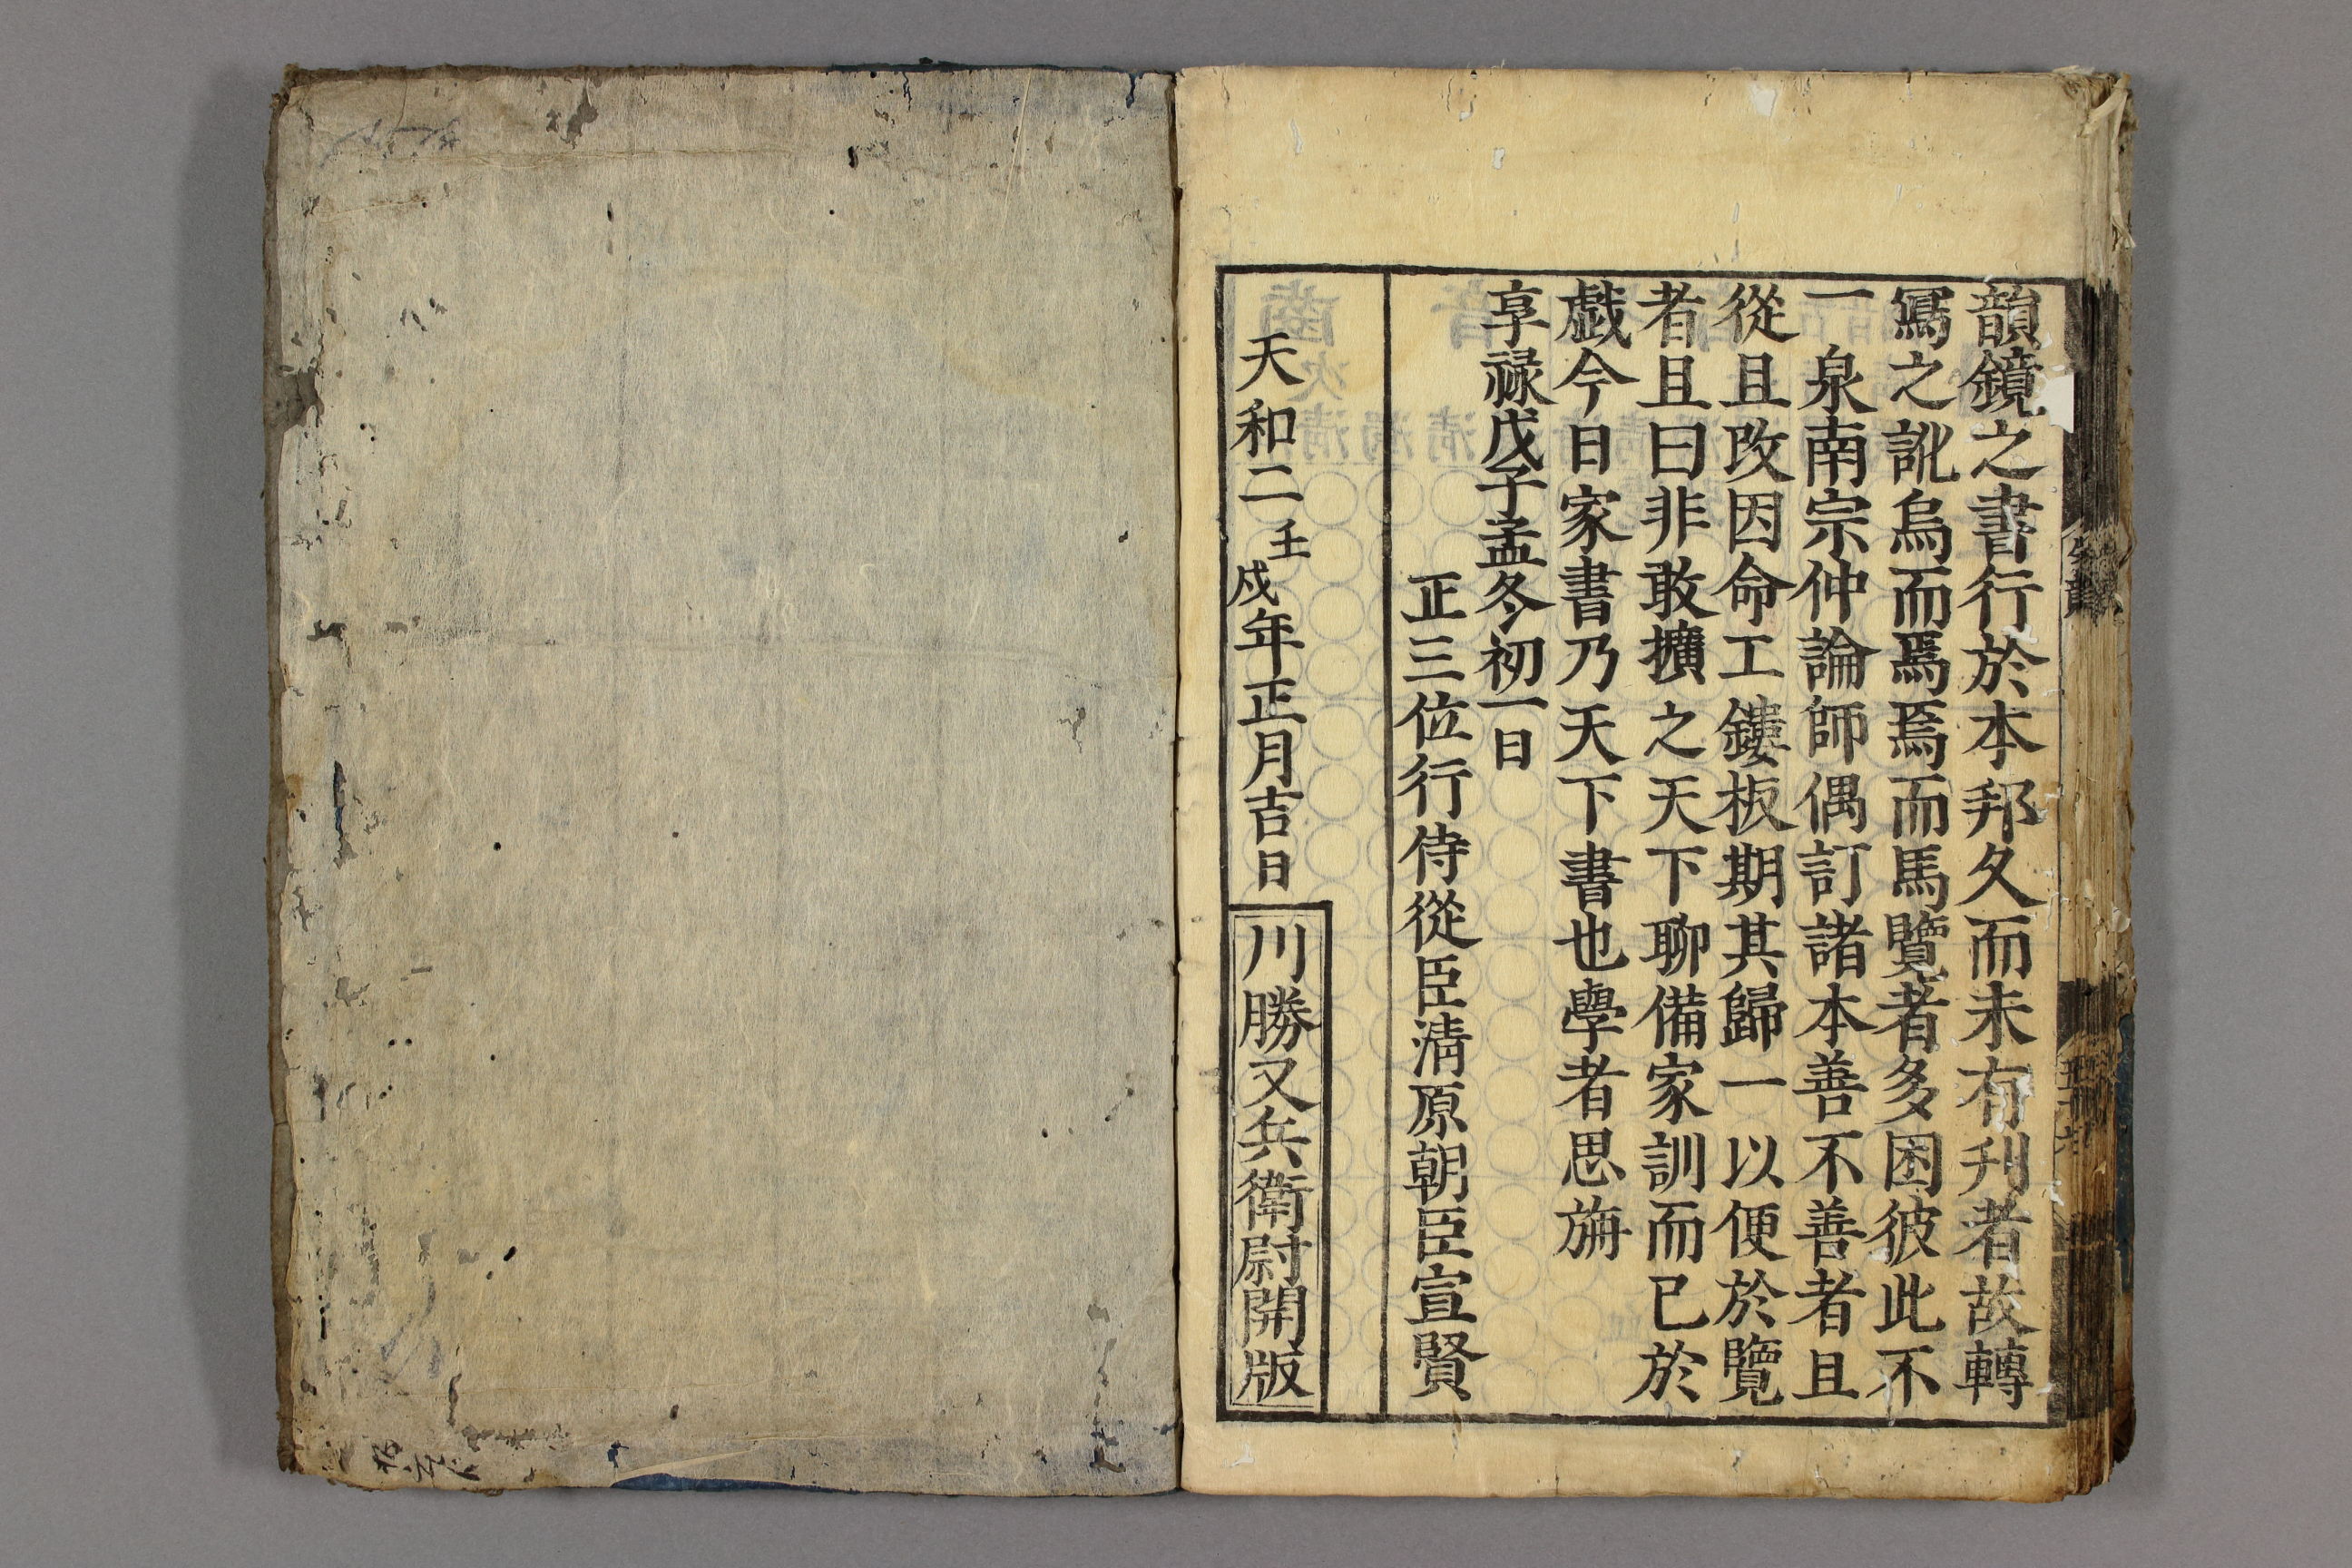 韻鏡之書行於本邦久而未有刋者故轉
寫之訛烏而焉焉而馬覽者多困彼此不
一泉南宗仲論師偶訂諸本善不善者且
從且改因命工鏤板期其歸一以便於覽
者且曰非敢擴之天下聊備家訓而已於
戯今日家書乃天下書也學者思旃
享禄戊子孟冬初一日
正三位行侍從臣清原朝臣宣賢
天和二壬戌年正月吉日
川勝又兵衛尉開版